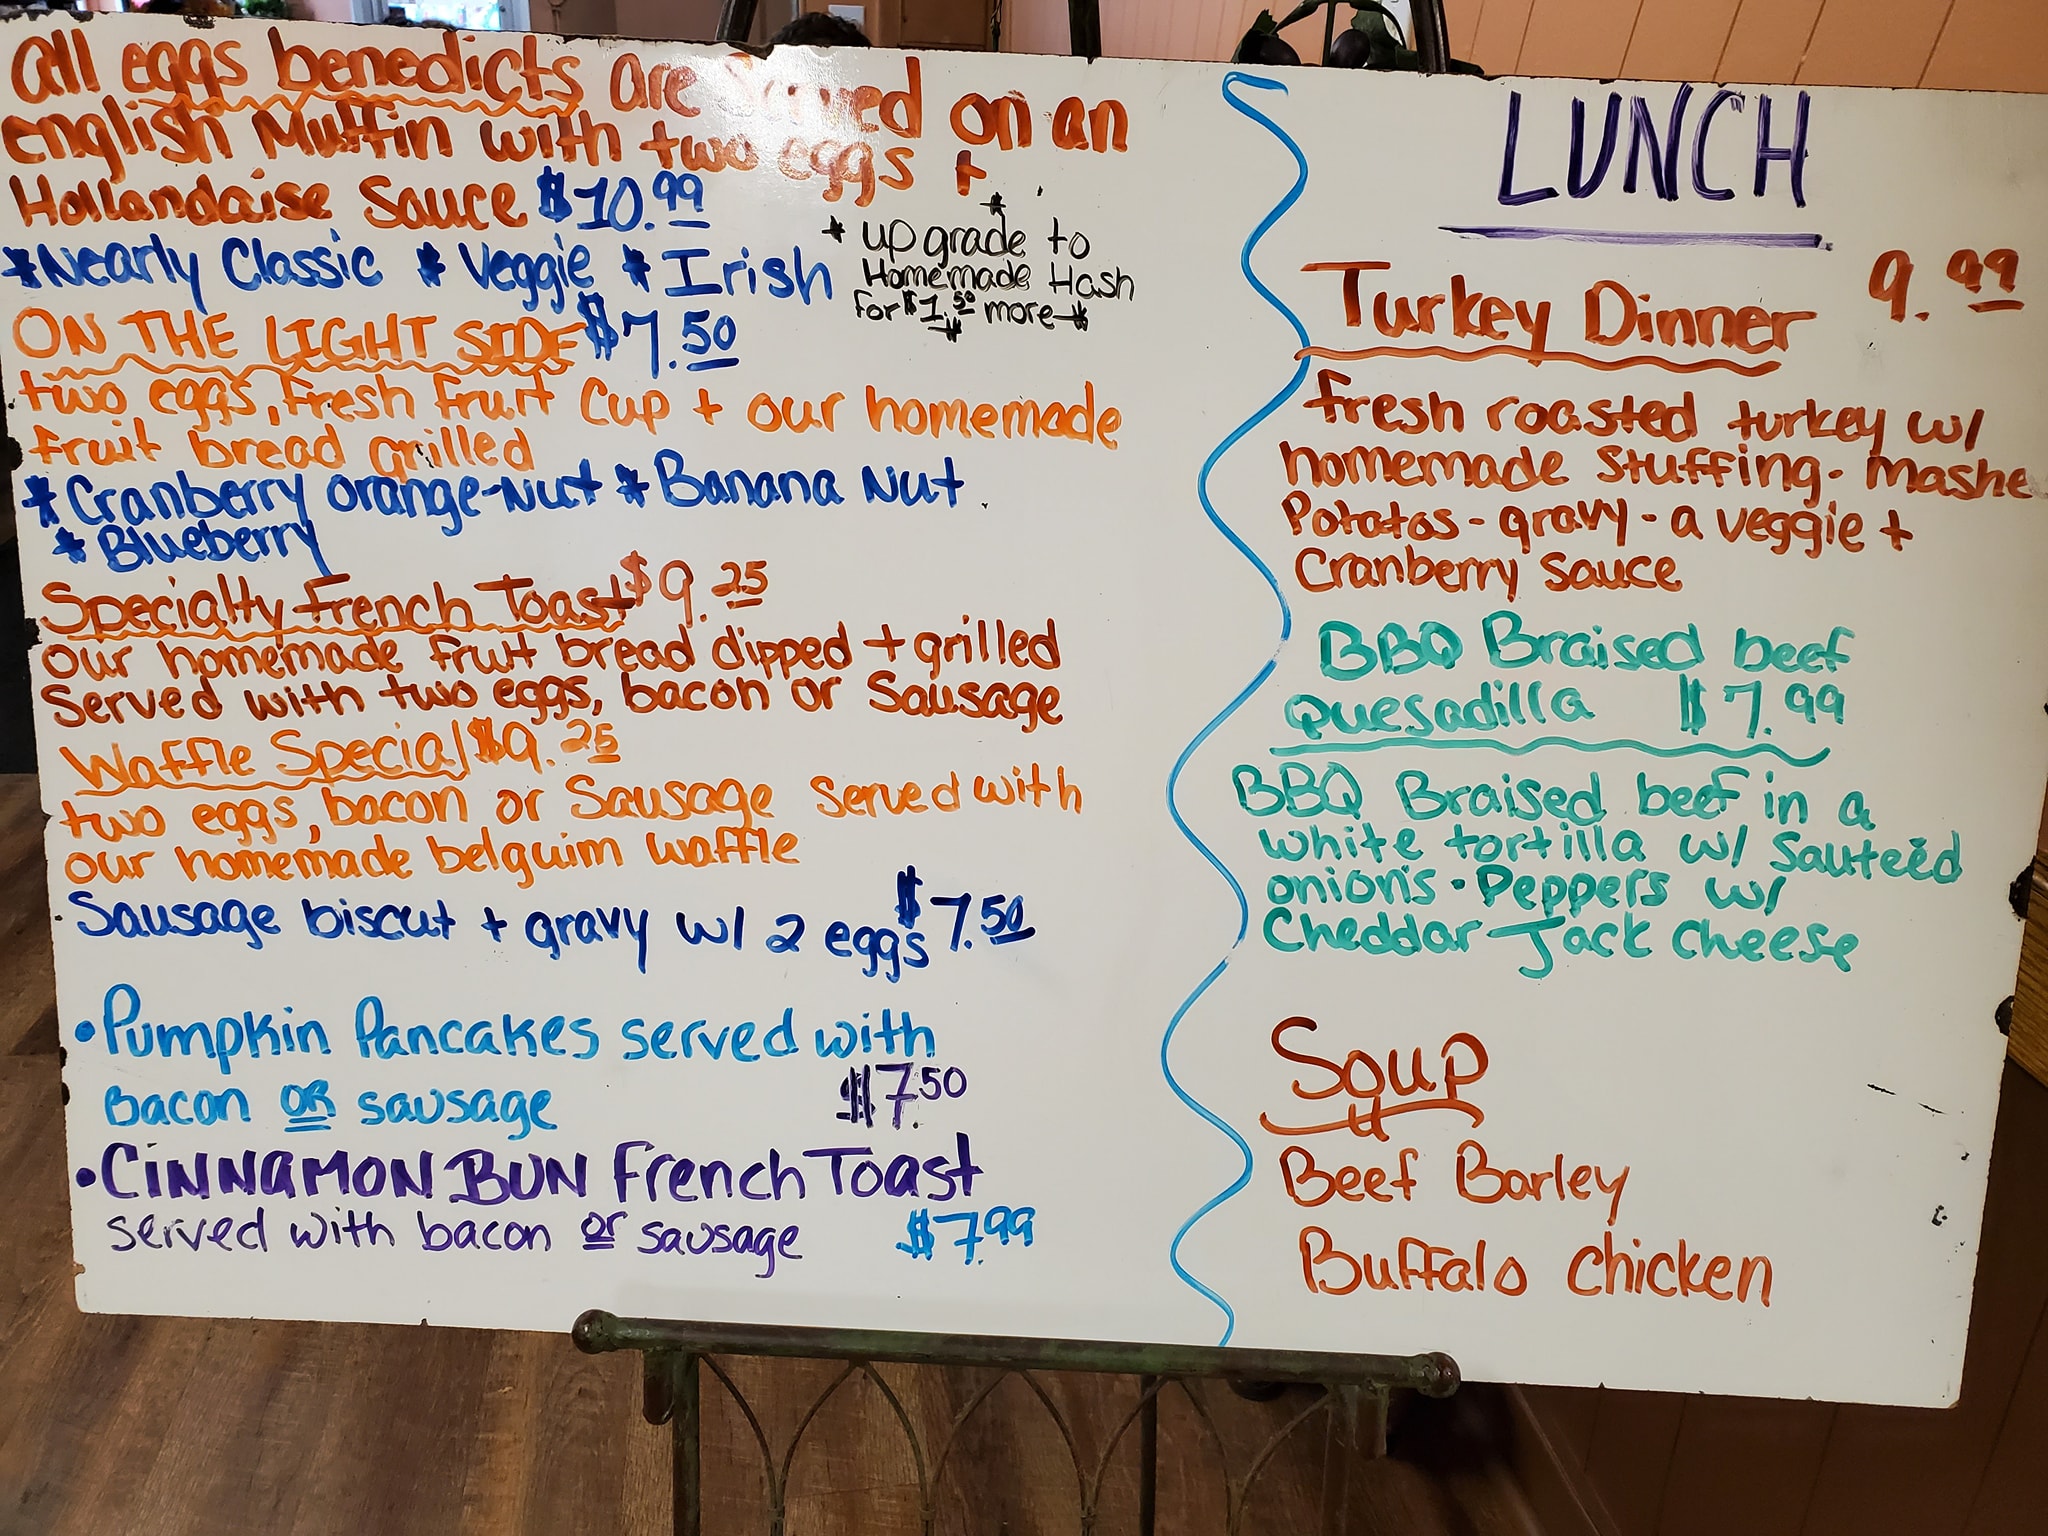 all eggs benedicts are served on an
english muffin with two eggs +
Hollandaise Sauce $10.99
*Nearly Classic * Veggie * Irish
* upgrade to
Homemade Hash
for $1.50 more *
ON THE LIGHT SIDE $7.50
two eggs, fresh fruit cup + our homemade
fruit bread grilled
* Cranberry orange-Nut * Banana Nut
* Blueberry
Specialty French Toast $9.25
our homemade fruit bread dipped + grilled
Served with two eggs, bacon or Sausage
Waffle Special $9.25
two eggs, bacon or Sausage Served with
our homemade belguim waffle
Sausage biscut + gravy w/ 2 eggs $7.50
• Pumpkin Pancakes served with
Bacon OR sausage $7.50
• CINNAMON BUN French Toast
served with bacon or sausage $7.99
LUNCH
Turkey Dinner 9.99
fresh roasted turkey w/
homemade stuffing - mashe
Potatos - gravy - a veggie +
Cranberry Sauce
BBQ Braised beef
Quesadilla $7.99
BBQ Braised beef in a
white tortilla w/ Sauteéd
onions • Peppers w/
Cheddar Jack Cheese
Soup
Beef Barley
Buffalo chicken